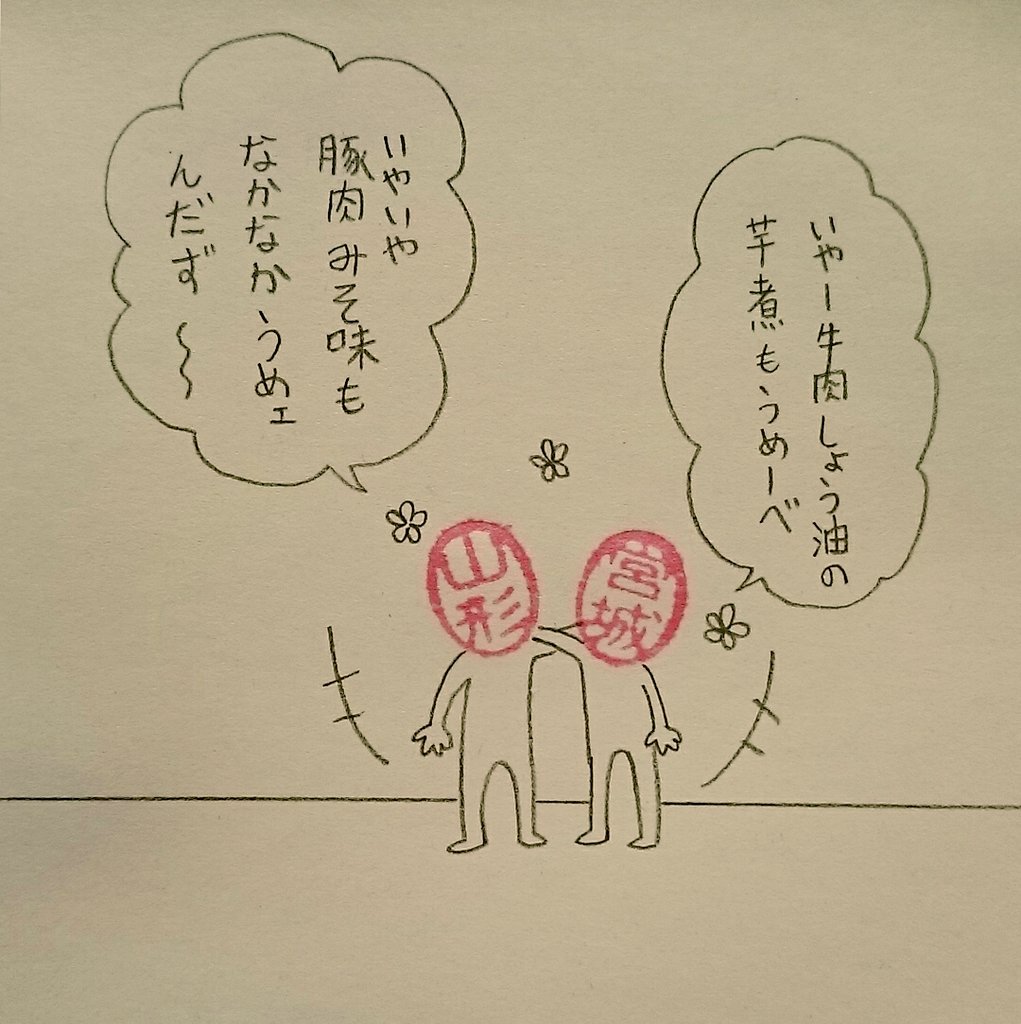 いやー牛肉しょう油の
芋煮もうめーべ
いやいや
豚肉みそ味も
なかなかうめェ
んだず〜〜
山形
宮城